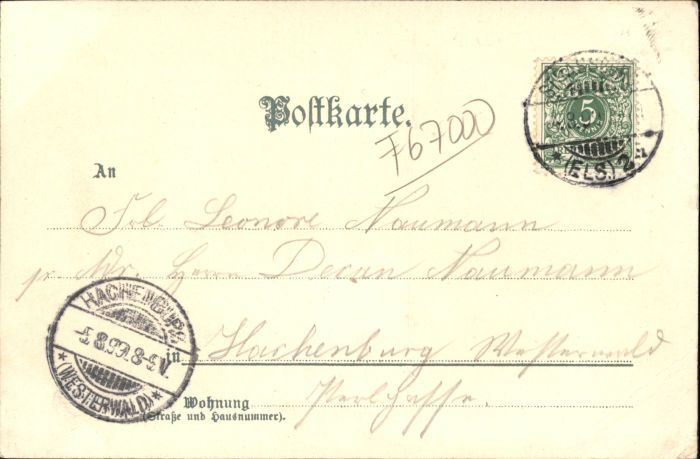 Postkarte.
5
(ELS.) 2
F67000
An
Frl. Leonore Naumann
pr. Adr. Herrn Decan Naumann
HACHENBURG
5.8.99.8-9V.
(WESTERWALD)
in Hachenburg Westerwald
Wohnung
(Straße und Hausnummer).